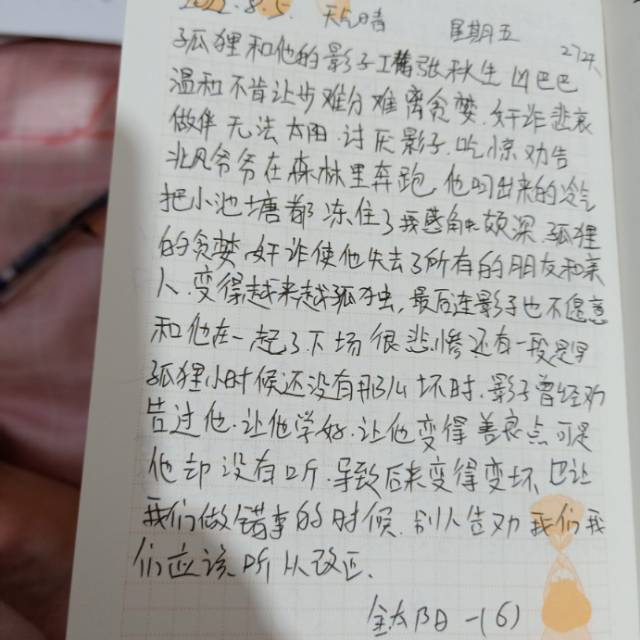 2022.8.5. 天气晴 星期五 272字
孤狐狸和他的影子 工藤张秋生 凶巴巴
温和不肯让步难分难离贪婪、奸诈悲哀
做伴 无法 太阳、讨厌影子、吃惊劝告
北风爷爷在森林里奔跑、他呵出来的冷气
把小池塘都冻住了我感触颇深、狐狸
的贪婪、奸诈使他失去了所有的朋友和亲
人、变得越来越孤独,最后连影子也不愿意
和他在一起了、下场很悲惨还有一段是
狐狸小时候还没有那么坏时、影子曾经劝
告过他、让他学好、让他变得善良点可是
他却没有听、导致后来变得变坏、也让
我们做错事的时候、别人告劝我们我
们应该听从改正、
阳一(6)